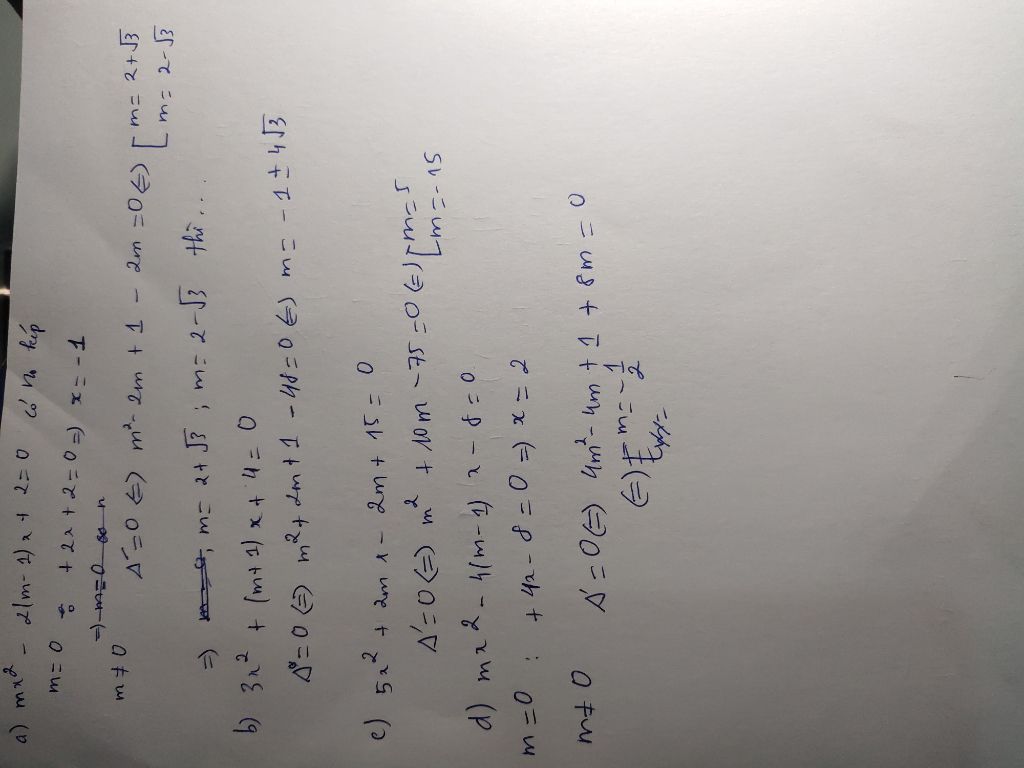 a) mx² - 2(m-1)x + 2 = 0 có no kép
m = 0 : + 2x + 2 = 0 => x = -1
=> m = 0
m ≠ 0
Δ' = 0 <=> m² - 2m + 1 - 2m = 0 <=> [ m = 2+√3
m = 2-√3
=> m = 2+√3 ; m = 2-√3 thì ...
b) 3x² + (m+1)x + 4 = 0
Δ = 0 <=> m² + 2m + 1 - 48 = 0 <=> m = -1 ± 4√3
c) 5x² + 2mx - 2m + 15 = 0
Δ' = 0 <=> m² + 10m - 75 = 0 <=> [ m = 5
m = -15
d) mx² - 4(m-1)x - 8 = 0
m = 0 : + 4x - 8 = 0 => x = 2
m ≠ 0 Δ' = 0 <=> 4m² - 4m + 1 + 8m = 0
<=> m = -1/2